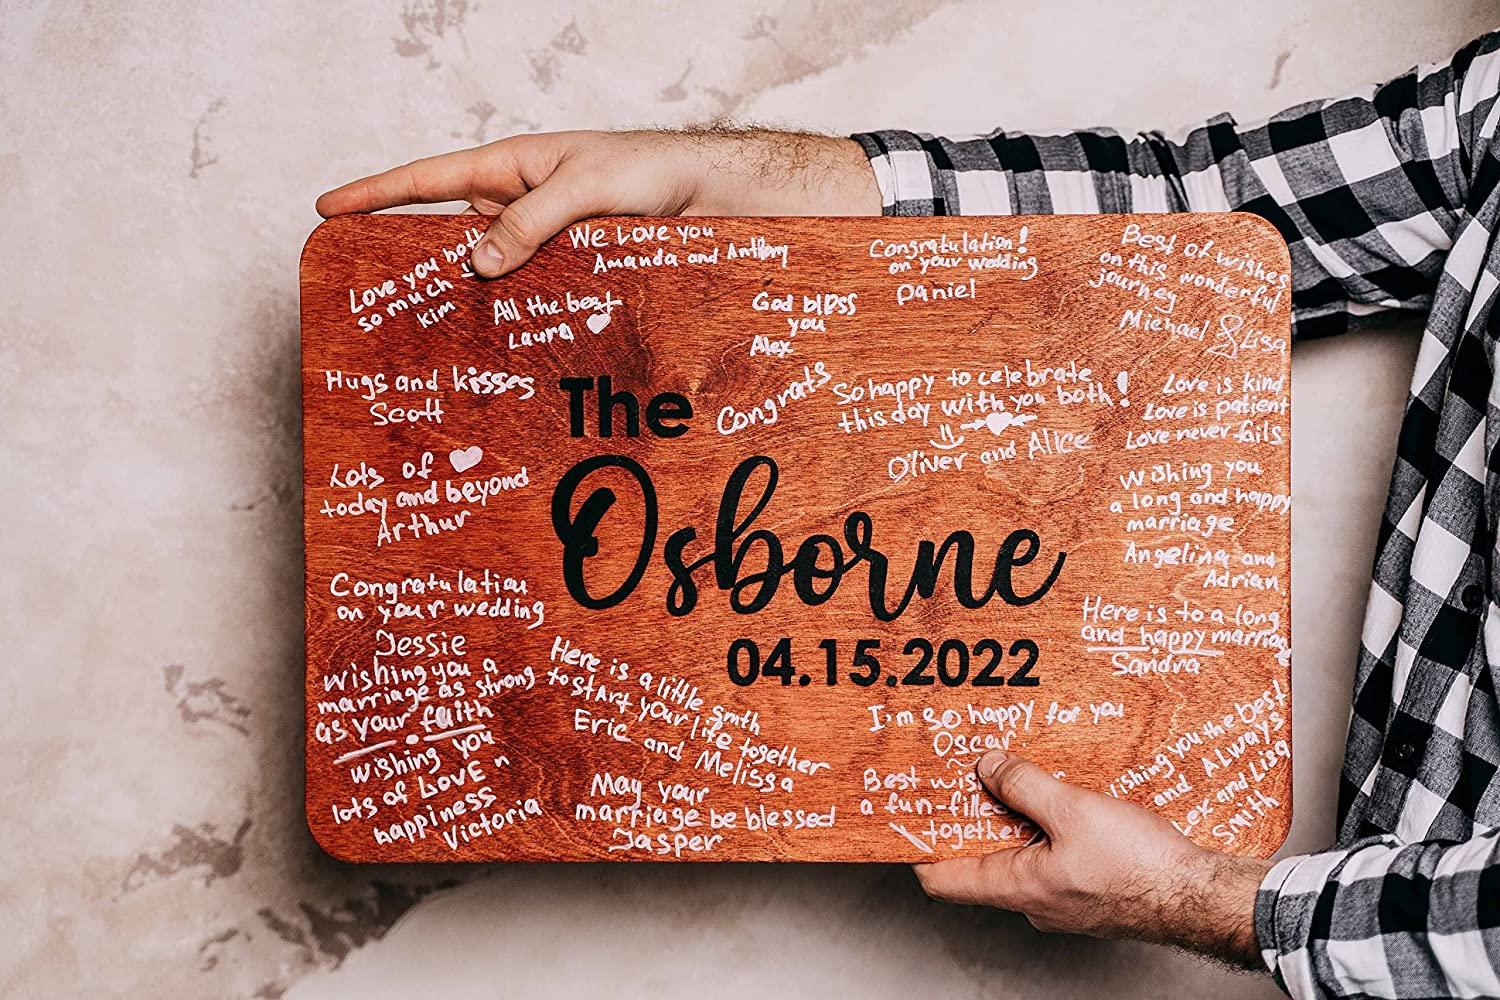 Love you both
so much
kim
We Love you
Amanda and Anthony
Congratulation!
on your wedding
Daniel
Best of wishes
on this wonderful
journey
Michael & Lisa
All the best
Laura
God bless
you
Alex
Hugs and kisses
Scott
The
Congrats
So happy to celebrate
this day with you both!
Oliver and Alice
Love is kind
Love is patient
Love never fails
Lots of
today and beyond
Arthur
Osborne
Wishing you
a long and happy
marriage
Angelina and
Adrian
Congratulation
on your wedding
Jessie
04.15.2022
Here is to a long
and happy marriage
Sandra
Wishing you a
marriage as strong
as your faith
Here is a little smth
to start your life together
Eric and Melissa
I'm so happy for you
Oscar
Wishing you the best
and Always
Lex and Lisa
Smith
Wishing you
lots of LovE n
happiness
Victoria
May your
marriage be blessed
Jasper
Best
a fun-
together